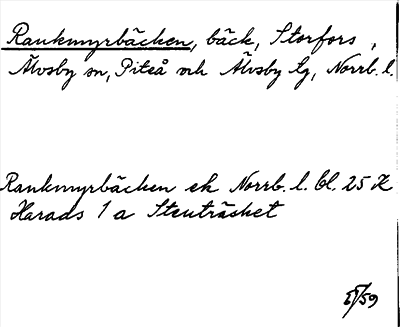 Rankmyrbäcken, bäck, Storfors,
Älvsby sn, Piteå o.h Älvsby tg, Norrb. l.
Rankmyrbäcken ek Norrb. l. bl. 25 K
Harads 1 a Stenträsket
59